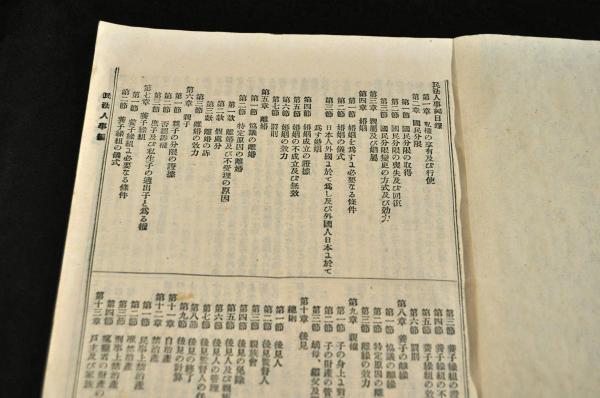 民法人事編目錄
第一章 私權の享有及び行使
第二章 國民分限
第一節 國民分限の取得
第二節 國民分限の喪失及び回復
第三節 國民分限變更の方式及び効力
第三章 親屬及び姻屬
第四章 婚姻
第一節 婚姻を爲すに必要なる條件
第二節 婚姻の儀式
第三節 日本人外國に於て爲し及び外國人日本に於て
爲す婚姻
第四節 婚姻成立の證據
第五節 婚姻の不成立及び無效
第六節 婚姻の効力
第七節 罰則
第五章 離婚
第一節 協議の離婚
第二節 特定原因の離婚
第一款 離婚及び不受理の原因
第二款 假處分
第三款 離婚の訴
第三節 離婚の効力
第六章 親子
第一節 親子の分限の證據
第二節 否認訴權
第三節 庶子及び私生子の適出子と爲る權
第七章 養子緣組
第一節 養子緣組に必要なる條件
第二節 養子緣組の儀式
民法人事編
第三節 養子緣組の證
第四節 養子緣組の不
第五節 養子緣組の効
第六節 罰則
第八章 養子の離緣
第一節 協議の離緣
第二節 特定原因の離
第三節 離緣の効力
第九章 親權
第一節 子の身上に對
第二節 子の財産の管
第三節 嫡母、繼父及
第十章 後見
總則
第一節 後見人
第二節 後見監督人
第三節 親族會
第四節 後見の免除
第五節 後見人及び親
第六節 後見人の管理
第七節 後見監督人の任
第八節 後見の終了
第九節 後見の計算
第十一章 自治産
第十二章 禁治産
第一節 民事上禁治産
第二節 准禁治産
第三節 刑事上禁治産
第四節 瘋癲者の財産の
第十三章 戸主及び家族